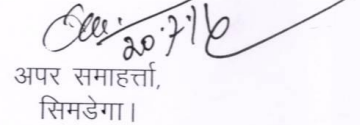 20.7.16
अपर समाहर्त्ता,
सिमडेगा।